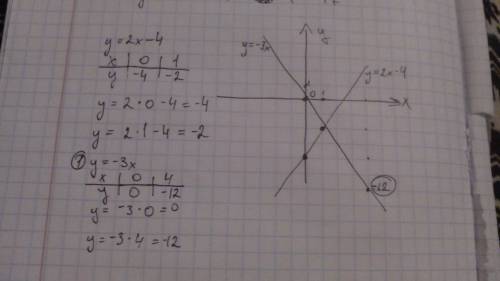 y=2x-4
x | 0 | 1
y | -4 | -2
y = 2 · 0 - 4 = -4
y = 2 · 1 - 4 = -2
① y=-3x
x | 0 | 4
y | 0 | -12
y = -3 · 0 = 0
y = -3 · 4 = -12
y
y=-3x
y=2x-4
0 1
x
-12